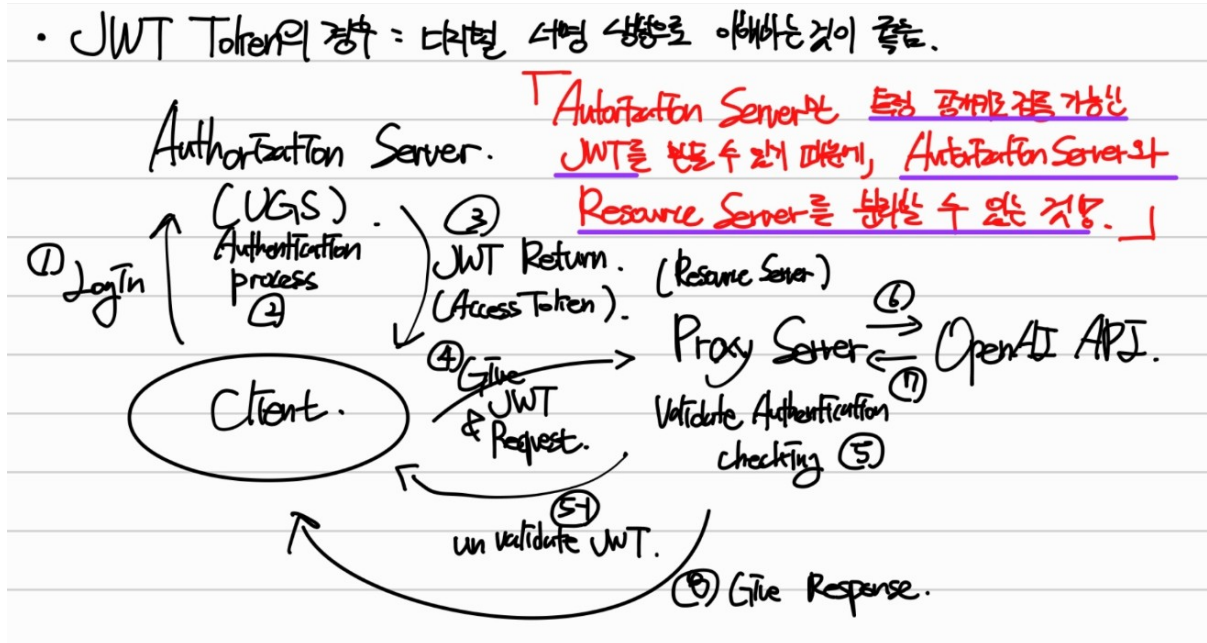 • JWT Token의 경우 : 디지털 서명 상황으로 이해하는 것이 좋음.
「Autorization Server만 특정 공개키로 검증 가능한
JWT를 만들 수 있기 때문에, Autorization Server와
Resource Server를 분리할 수 있는 것임.」
Authorization Server.
(UGS).
Authentication
process
②
① Login
③
JWT Return.
(Access Token).
Client.
④ Give
JWT
& Request.
(Resource Server)
Proxy Server
Validate Authentication
checking ⑤
⑥
OpenAI API.
⑦
⑤-1
un validate JWT.
⑧ Give Response.